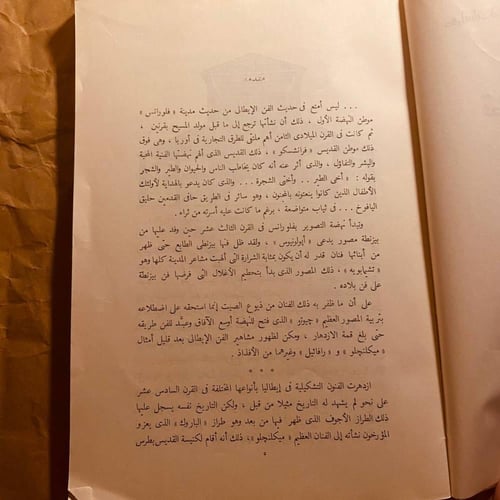 مقدمة
... ليس أمتع فى حديث الفن الإيطالى من حديث مدينة « فلورانس »
موطن النهضة الأول ، ذلك أن نشأتها ترجع إلى ما قبل مولد المسيح بقرنين ،
ثم كانت فى القرن الميلادى الثامن أهم ملتقى للطرق التجارية فى أوربا ، وهى فوق
ذلك موطن القديس « فرانشسكو » ، ذلك القديس الذى ألهم نهضتها الفنية المحبة
والبشر والتفاؤل ، والذى أثر عنه أنه كان يخاطب الناس والحيوان والطير والشجر
بقوله : « أخى الطير .. وأختى الشجرة ... والذى كان يدعو بالهداية لأولئك
الأطفال الذين كانوا ينعتونه بالمجنون ، وهو سائر فى الطريق حافى القدمين حليق
اليافوخ ... فى ثياب متواضعة ، برغم ما كانت عليه أسرته من ثراء .
وتبدأ نهضة التصوير بفلورانس فى القرن الثالث عشر حين وفد عليها من
بيزنطة مصور يدعى « أپولونيوس » ، ولقد ظل فنها بيزنطى الطابع حتى ظهر
من أبنائها فنان قدر له أن يكون بمثابة الشرارة التى ألهبت مشاعر المدينة كلها وهو
« تشيمابويه » ، ذلك المصور الذى بدأ بتحطيم الأغلال التى فرضها فن بيزنطة
على فن بلاده .
على أن ما ظفر به ذلك الفنان من ذيوع الصيت إنما استحقه على اضطلاعه
بتربية المصور العظيم « چيوتو » الذى فتح للنهضة أوسع الآفاق وعبّد للفن طريقه
حتى بلغ قمة الازدهار ، ومكن لظهور مشاهير الفن الإيطالى بعد قليل أمثال
« ميكلنچلو » و « رافائيل » وغيرهما من الأفذاذ .
* * *
ازدهرت الفنون التشكيلية فى إيطاليا بأنواعها المختلفة فى القرن السادس عشر
على نحو لم يشهد له التاريخ مثيلا من قبل ، ولكن التاريخ نفسه يسجل عليها
ذلك الطراز الأجوف الذى ظهر فيها من بعد وهو طراز « الباروك » الذى يعزو
المؤرخون نشأته إلى الفنان العظيم « ميكلنچلو » ، ذلك أنه أقام لكنيسة القديس بطرس
٥